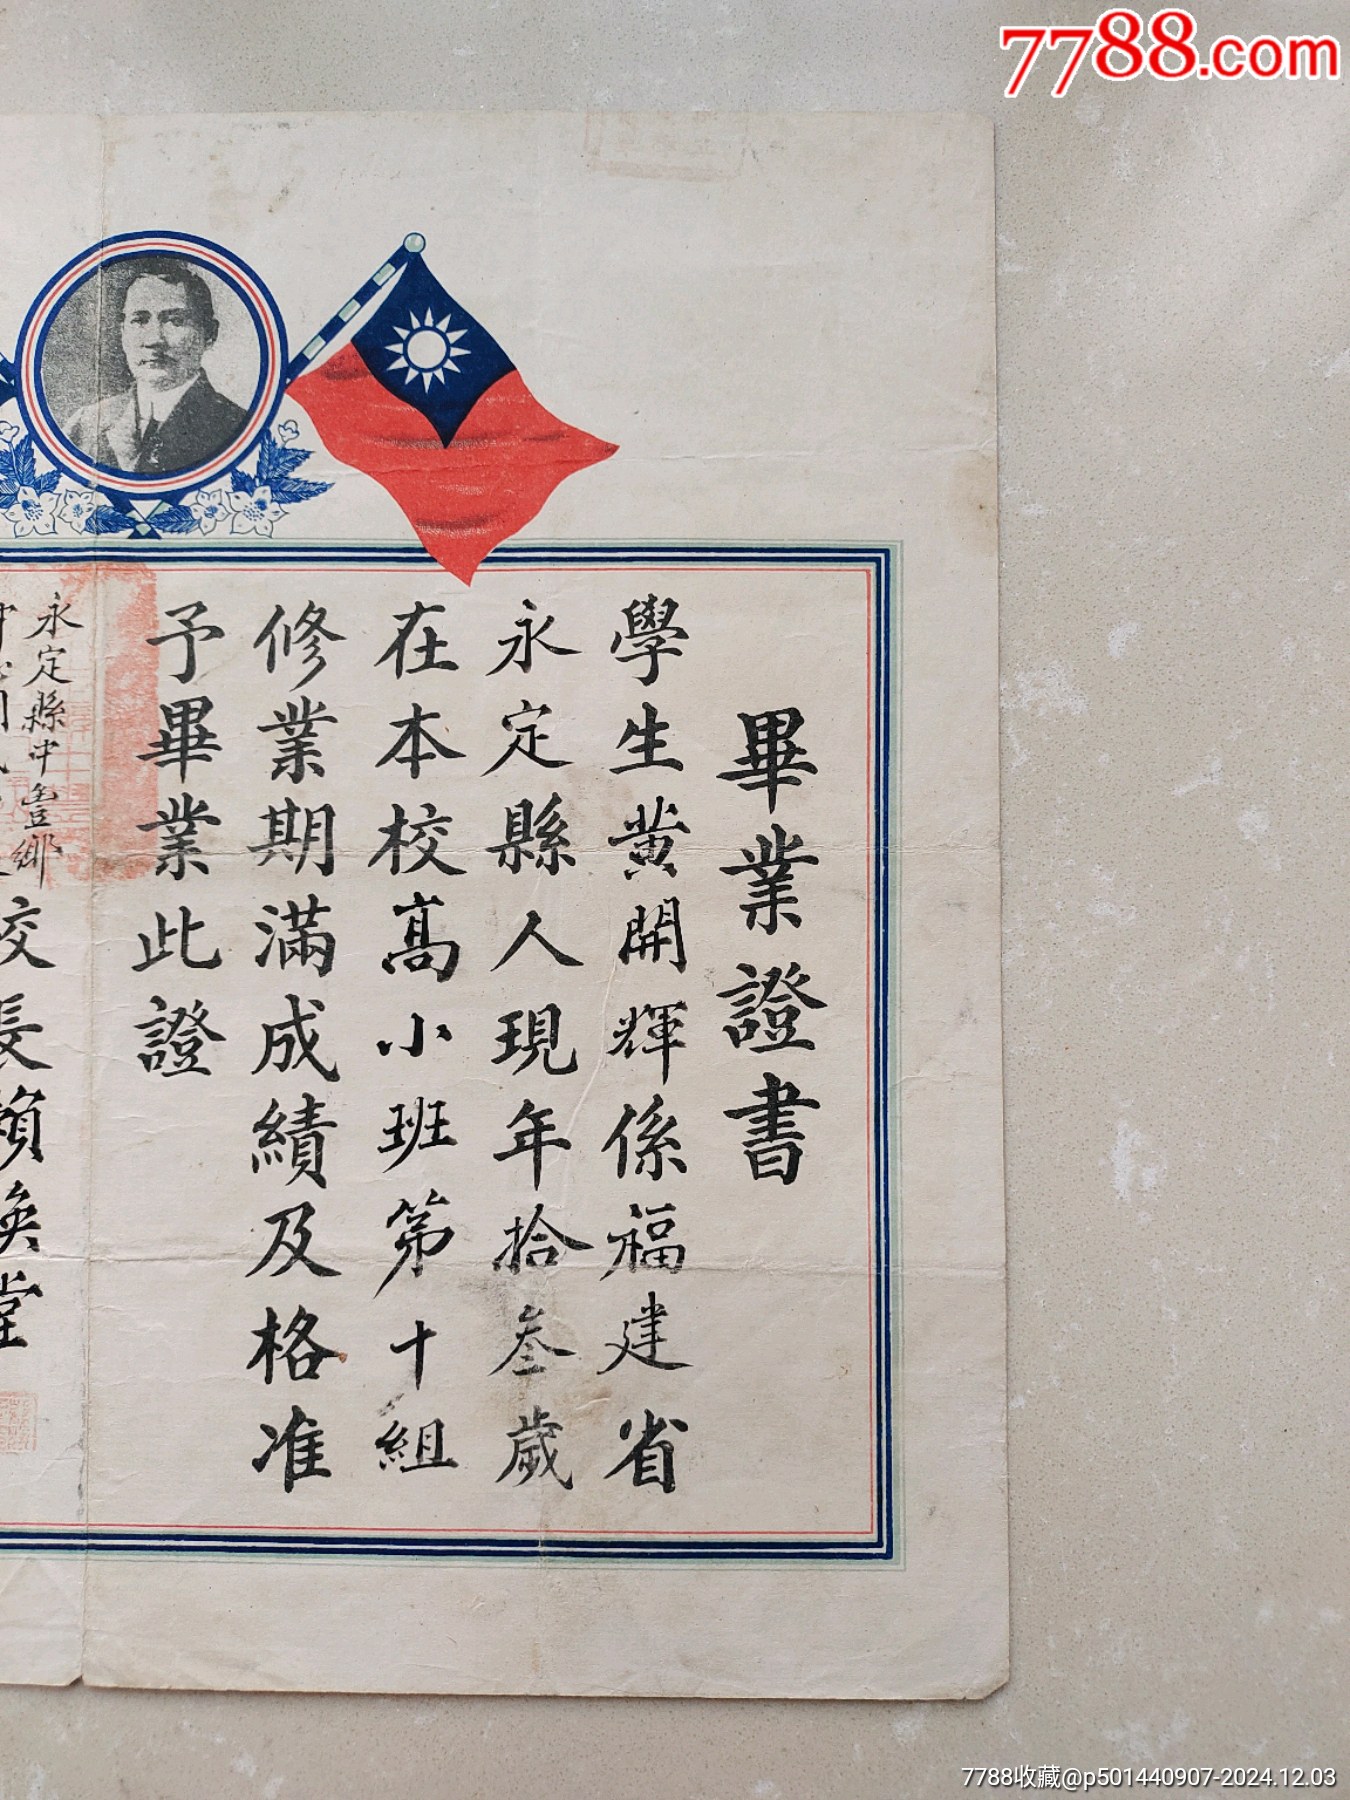 7788.com
畢業證書
學生黄開輝係福建省
永定縣人現年拾叁歲
在本校高小班第十組
修業期滿成績及格准
予畢業此證
永定縣中豊鄉
校長賴奐堂
7788收藏@p501440907-2024.12.03